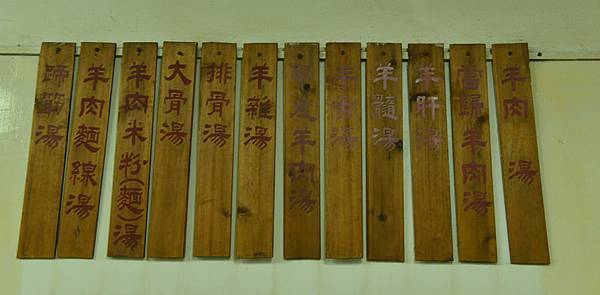 羊肉湯
當歸羊肉湯
羊肝湯
羊髓湯
帶皮羊肉湯
羊雜湯
排骨湯
大骨湯
羊肉米粉(麵)湯
羊肉麵線湯
蹄筋湯